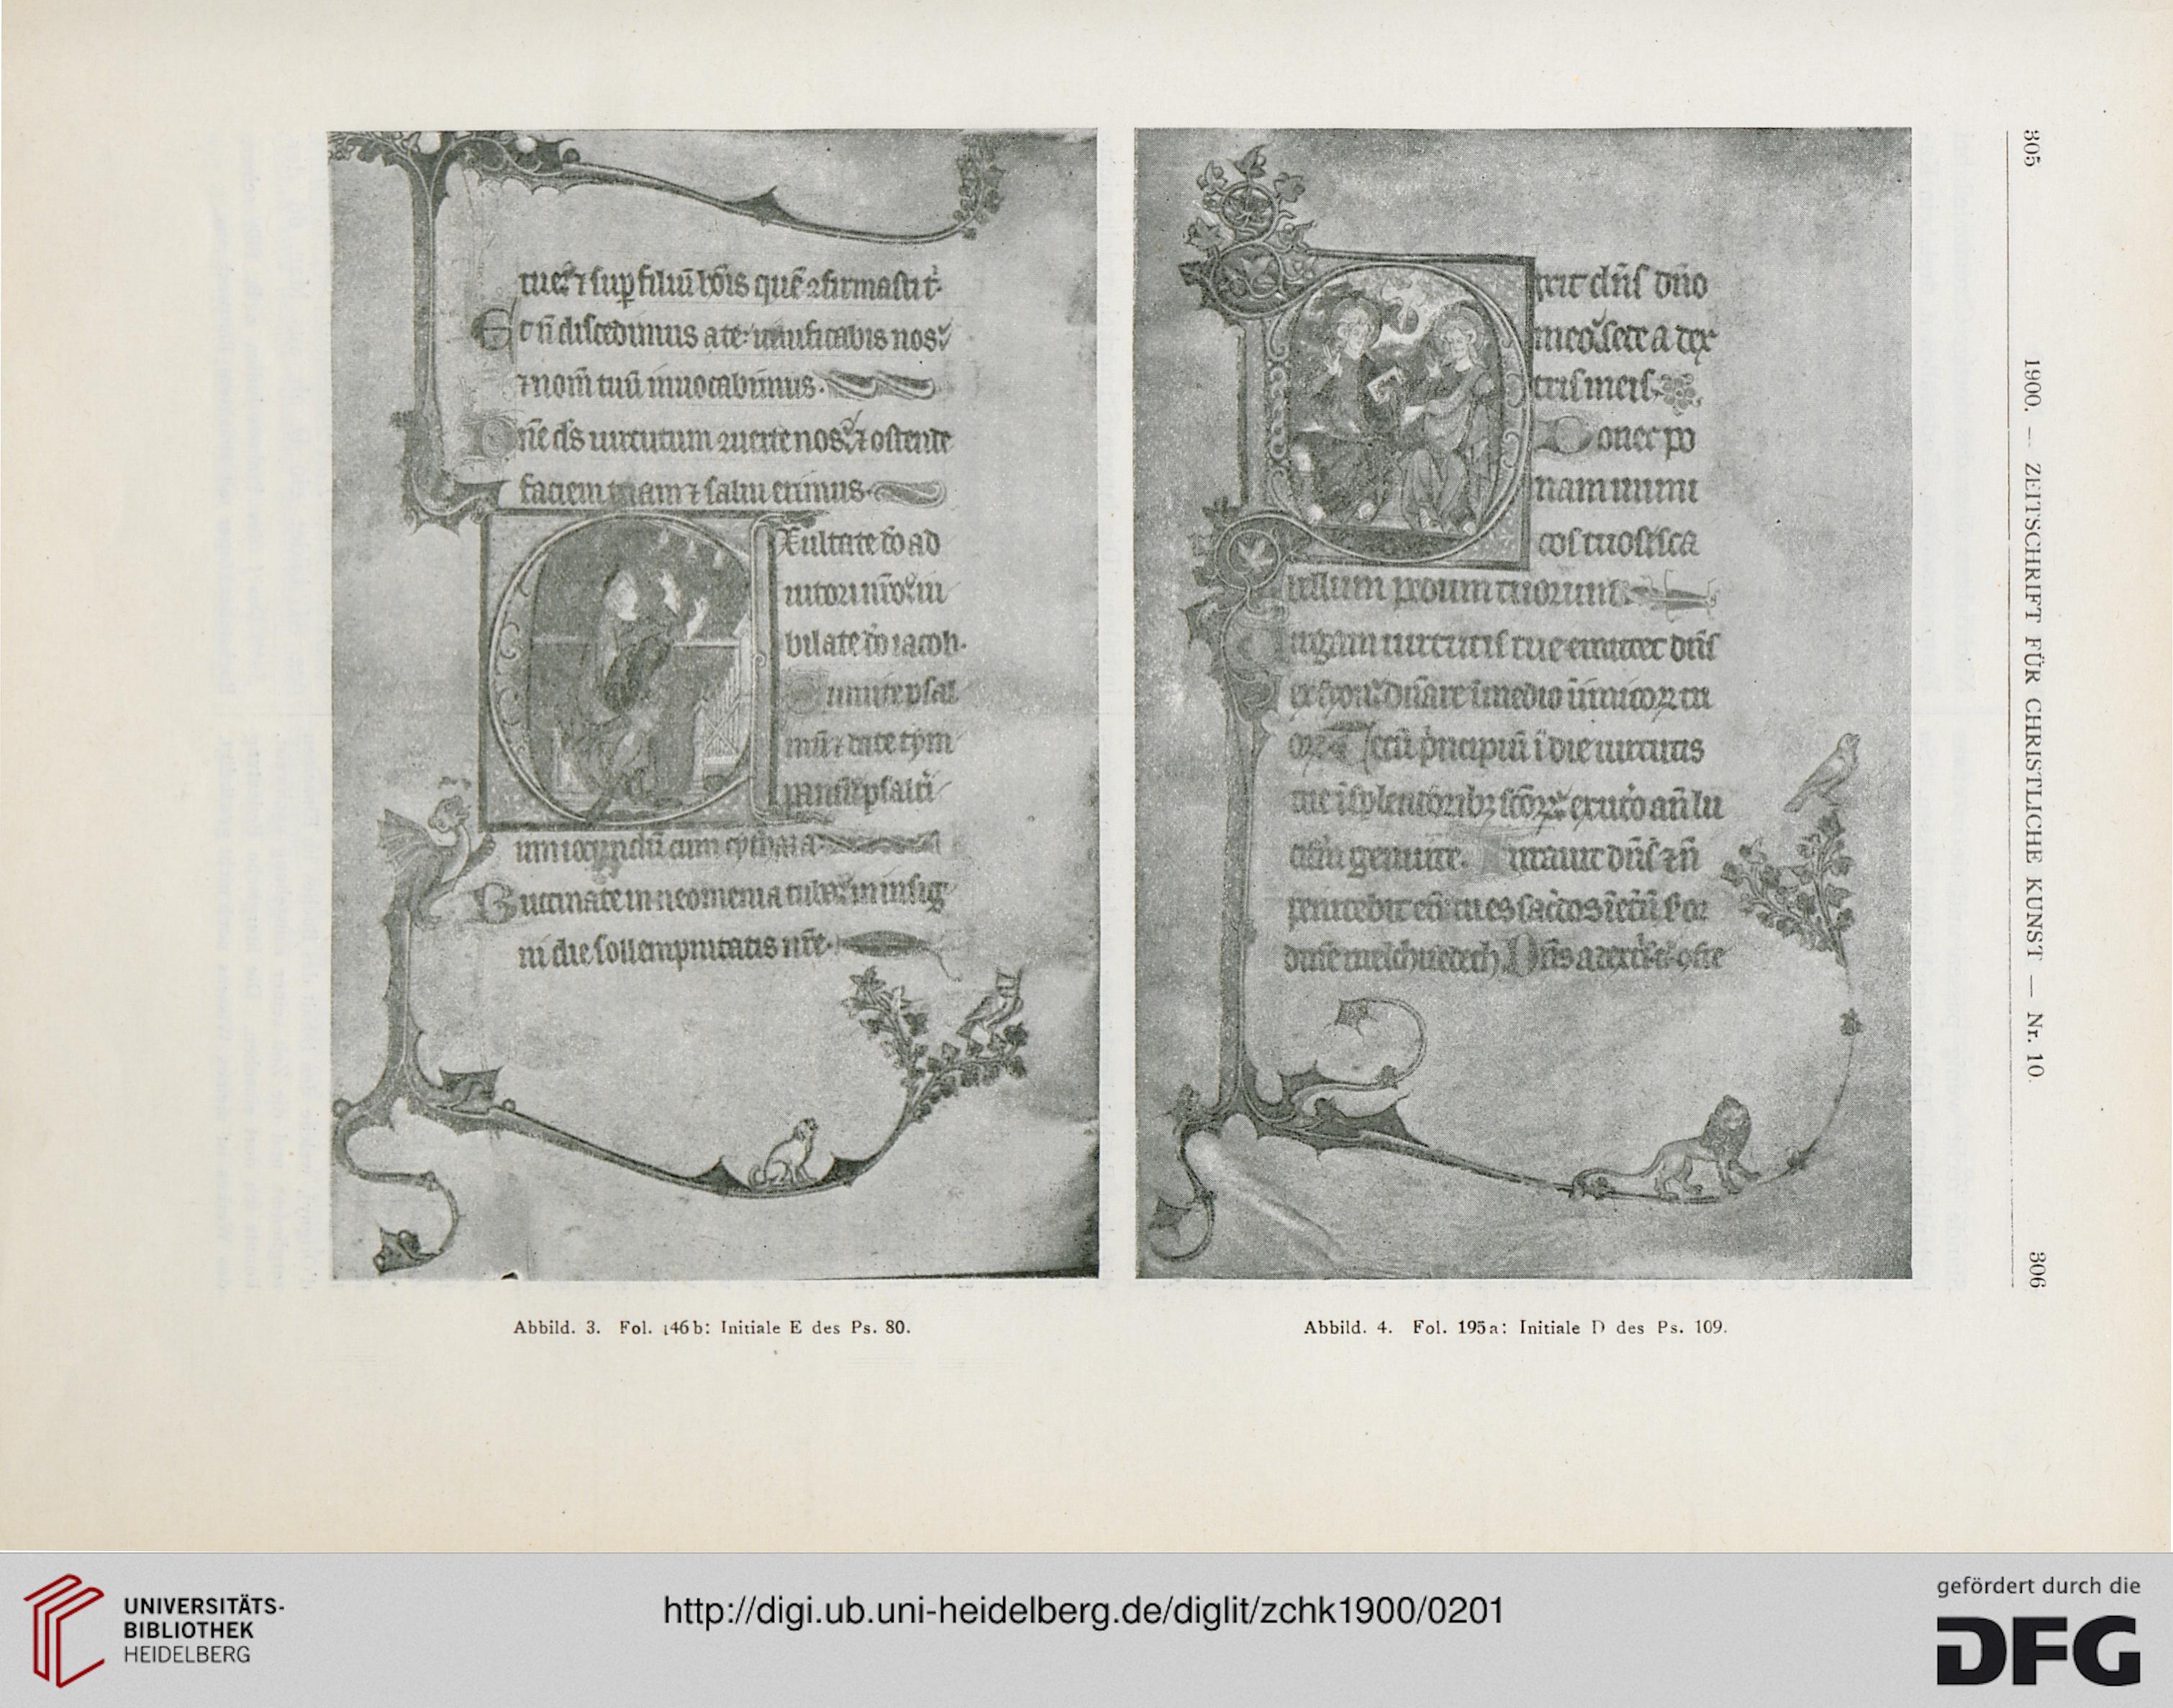 305
1900. — ZEITSCHRIFT FÜR CHRISTLICHE KUNST — Nr. 10.
306
tue⁊ ⁊ sup filiū hōis quē ꝯfirmasti t
Et nō discedimus a te: uiuificabis nos
⁊ nom̄ tuū inuocabimus.
Dn̄e ds̄ uirtutum ꝯuerte nos ⁊ ostende
faciem tuam ⁊ salui erimus.
Exultate do ad
iutori nr̄o iu
bilate do iacob.
Sumite psal
mū ⁊ date tym
panū psalt̄i
um iocundū cum cythara
Buccinate in neomenia tuba in insig
ni die sollempnitatis nr̄e.
Dixit dn̄s dn̄o
meo sede a dex
tris meis.
Donec po
nam inimi
cos tuos sca
bellum pedum tuorum
Uirgam uirtutis tue emittet dn̄s
ex syon dn̄are ī medio inimicoꝝ tu
oꝝ Tecū principiū ī die uirtutis
tue ī splendoribꝫ scōꝝ ex utero an̄ lu
cifm̄ genui te. Iurauit dn̄s ⁊ n̄
penitebit eū tu es sacdos ī et̄nū s or
dinē melchisedech Dn̄s a dextris
Abbild. 3. Fol. 146b: Initiale E des Ps. 80.
Abbild. 4. Fol. 195a: Initiale D des Ps. 109.
UNIVERSITÄTS-
BIBLIOTHEK
HEIDELBERG
http://digi.ub.uni-heidelberg.de/diglit/zchk1900/0201
gefördert durch die
DFG